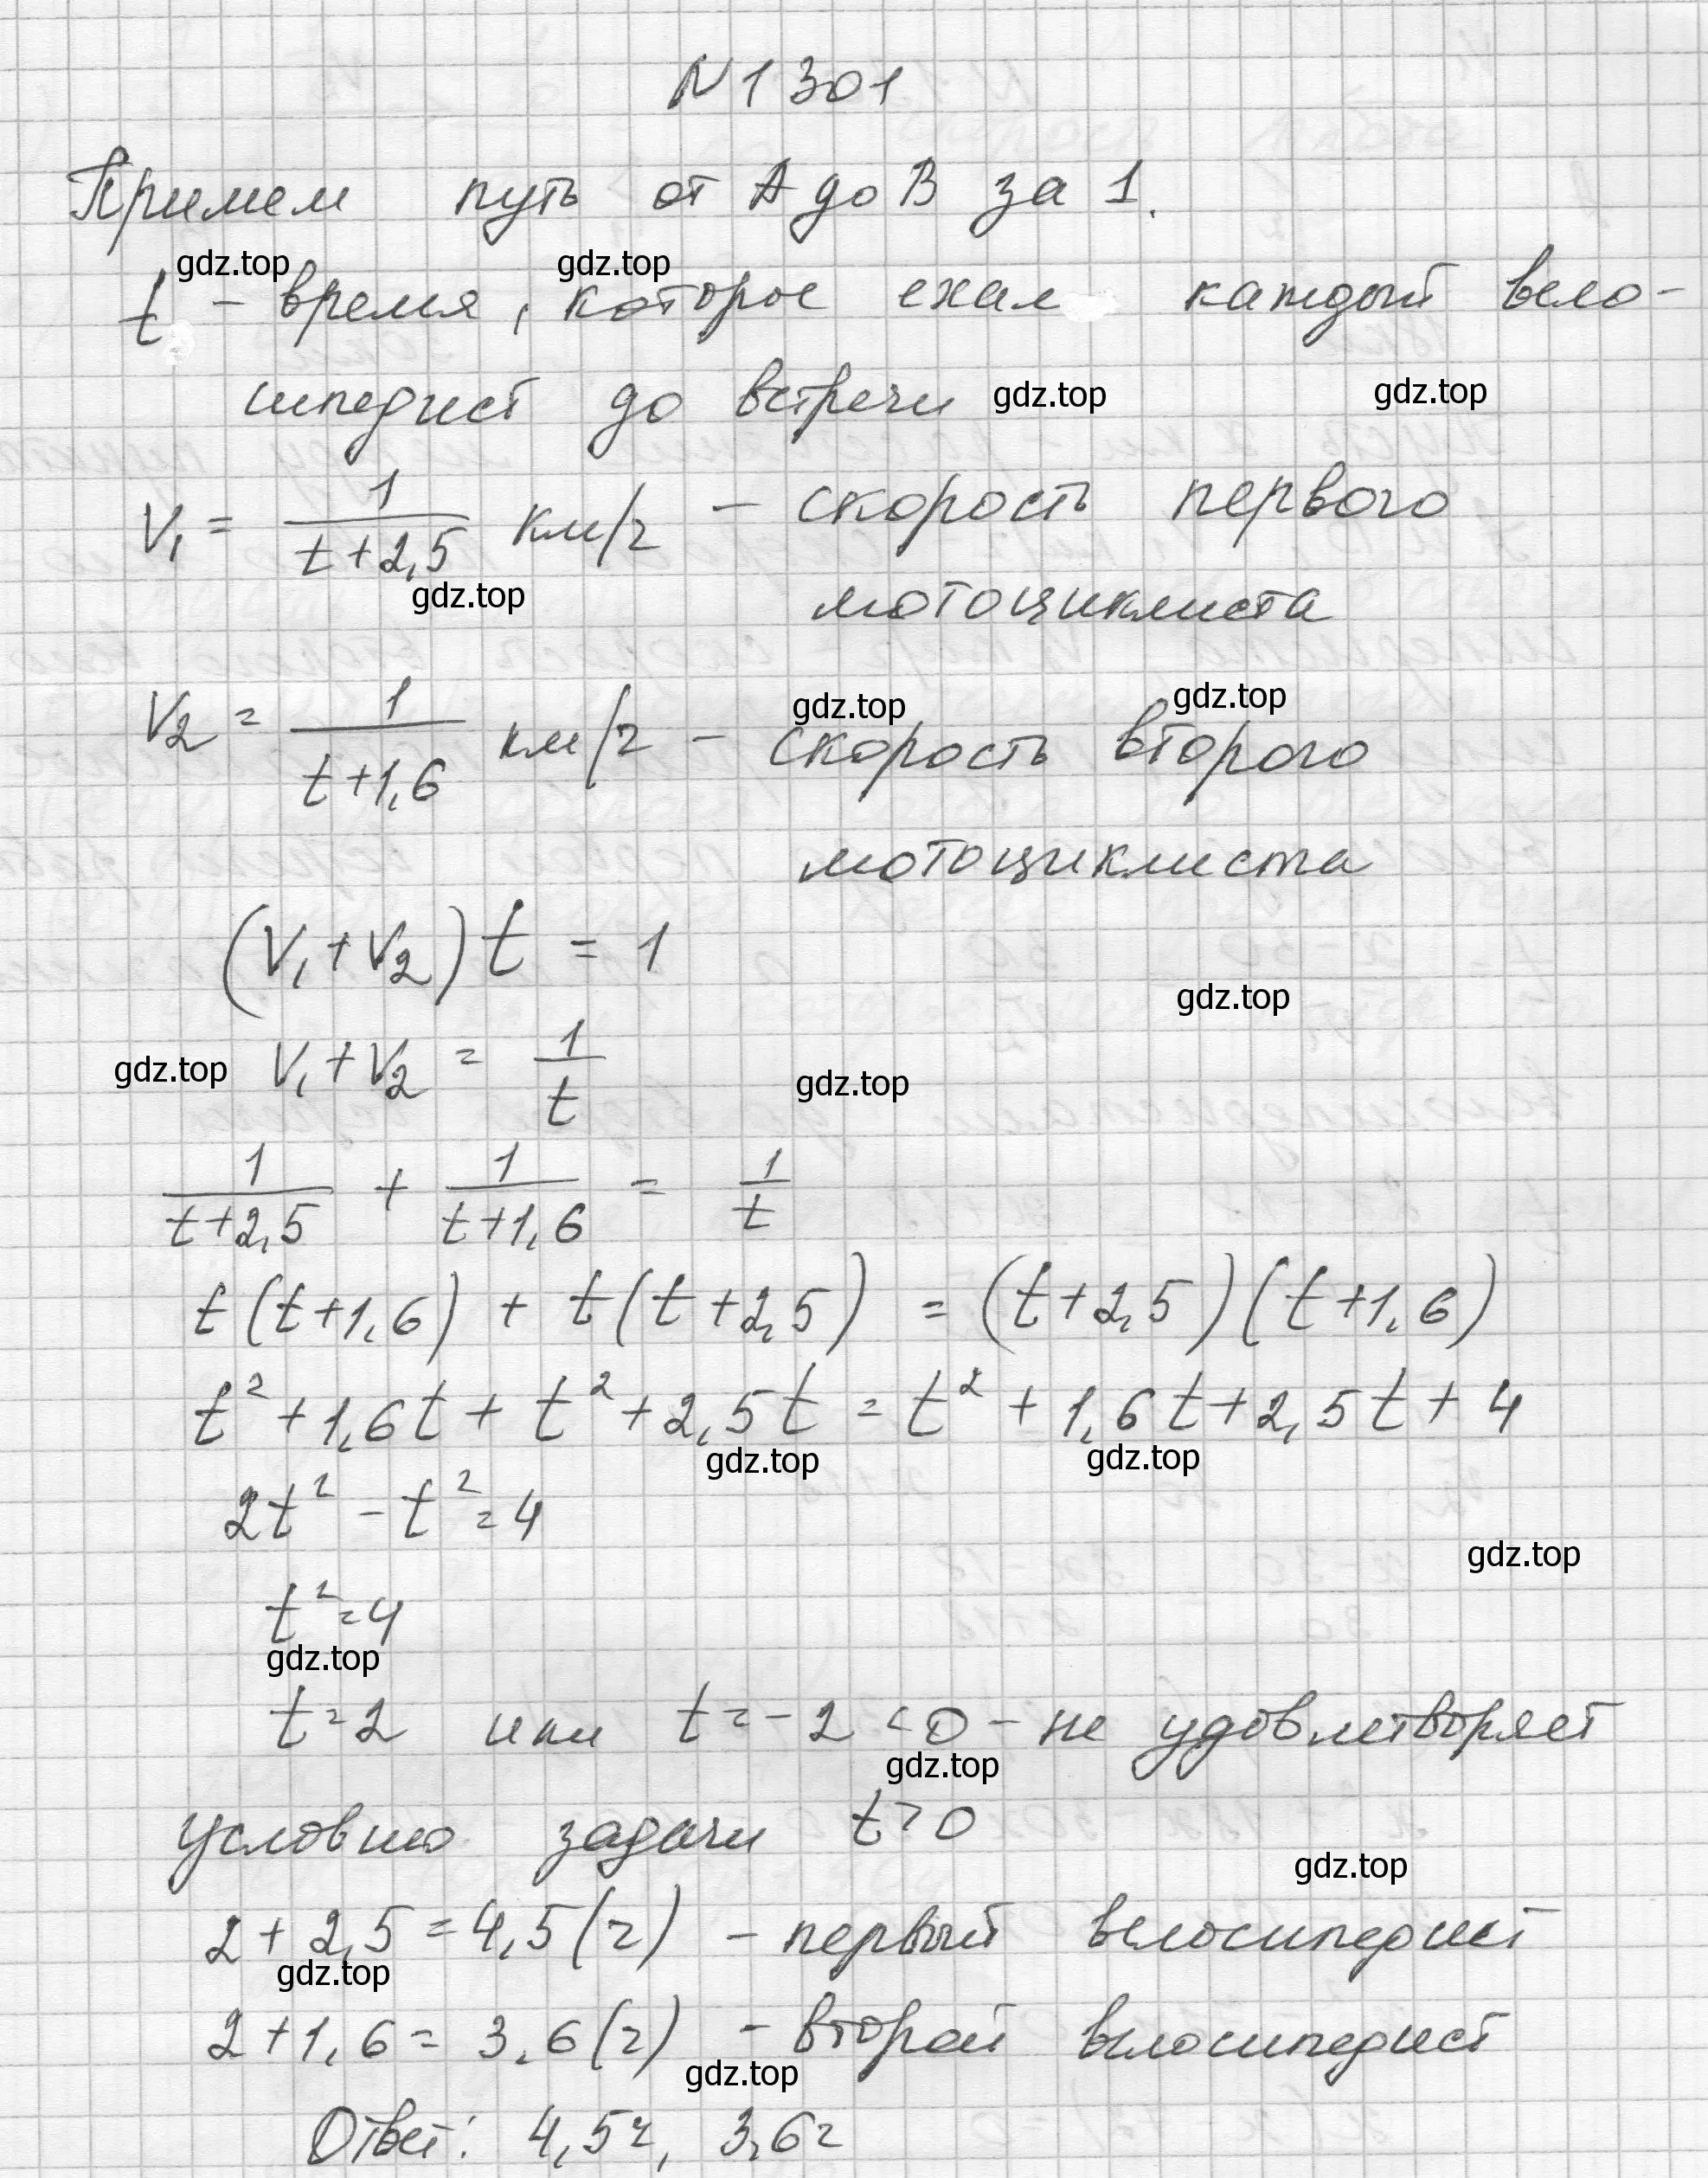 N 1301
Примем путь от А до В за 1.
gdz.top gdz.top
t - время, которое ехал каждый вело-
сипедист до встречи gdz.top gdz.top
V₁ = 1/(t+2,5) км/ч - скорость первого
gdz.top
мотоциклиста
gdz.top gdz.top
V₂ = 1/(t+1,6) км/ч - скорость второго
мотоциклиста
(V₁+V₂)t = 1
gdz.top
gdz.top V₁+V₂ = 1/t gdz.top
1/(t+2,5) + 1/(t+1,6) = 1/t
t(t+1,6) + t(t+2,5) = (t+2,5)(t+1,6)
t²+1,6t+t²+2,5t = t²+1,6t+2,5t+4
gdz.top gdz.top
2t²-t²=4
gdz.top
t²=4
gdz.top
t=2 или t=-2<0 - не удовлетворяет
gdz.top
условию задачи t>0
gdz.top
2+2,5=4,5(ч) - первый велосипедист
gdz.top
2+1,6=3,6(ч) - второй велосипедист
gdz.top
Ответ: 4,5ч, 3,6ч